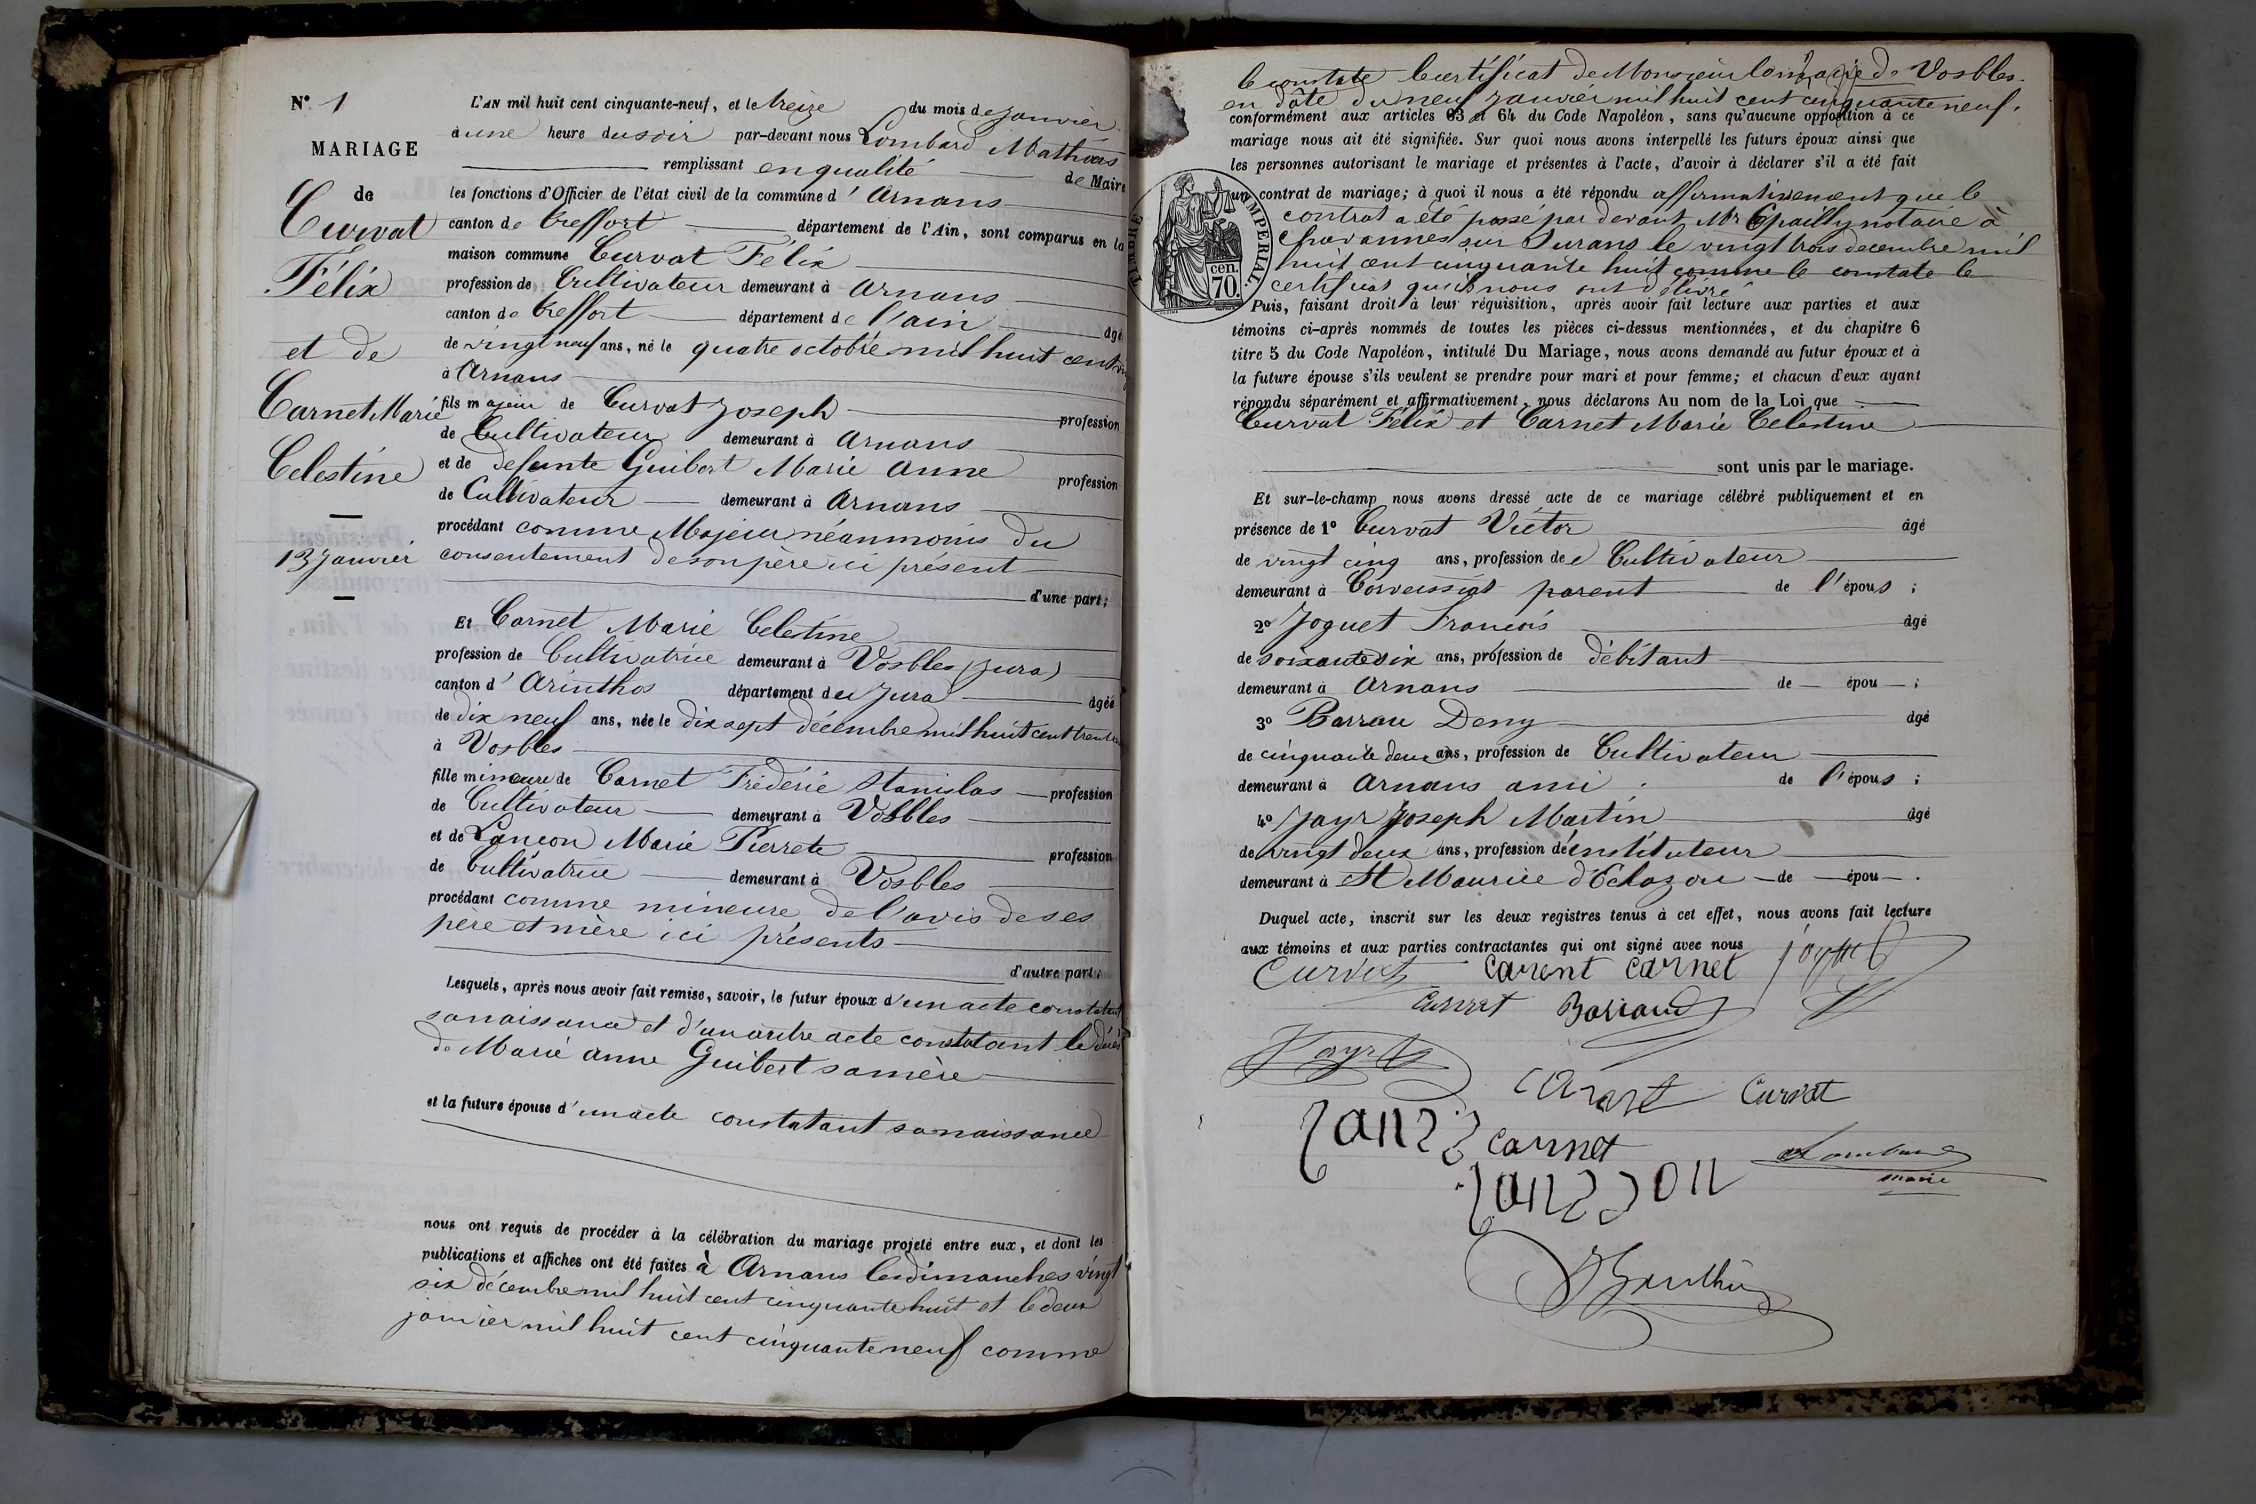 N° 1
MARIAGE
de
Curvat
Félix
et de
Carnet Marie
Celestine
13 janvier
L'AN mil huit cent cinquante-neuf, et le treize du mois de janvier
à une heure du soir par-devant nous Lombard Mathieu
remplissant en qualité de Maire
les fonctions d'Officier de l'état civil de la commune d'Arnans
canton de Treffort département de l'Ain, sont comparus en la
maison commune Curvat Félix
profession de Cultivateur demeurant à Arnans
canton de Treffort département de l'ain âgé
de vingt neuf ans, né le quatre octobre mil huit cent
à Arnans
fils majeur de Curvat Joseph profession
de Cultivateur demeurant à Arnans
et de defunte Guibert Marie Anne profession
de Cultivateur demeurant à Arnans
procédant comme Majeur néanmoins du
consentement de son père ici présent
d'une part;
Et Carnet Marie Celestine
profession de Cultivatrice demeurant à Vosbles (jura)
canton d'Arinthos département du Jura âgée
de dix neuf ans, née le dix sept décembre mil huit cent trente
à Vosbles
fille mineure de Carnet Fréderic Stanislas profession
de Cultivateur demeurant à Vosbles
et de Lançon Marie Pierrete profession
de Cultivatrice demeurant à Vosbles
procédant comme mineure de l'avis de ses
père et mère ici présents
d'autre part;
Lesquels, après nous avoir fait remise, savoir, le futur époux d'un acte constatant
sa naissance et d'un autre acte constatant le décès
de Marie Anne Guibert sa mère
et la future épouse d'un acte constatant sa naissance
nous ont requis de procéder à la célébration du mariage projeté entre eux, et dont les
publications et affiches ont été faites à Arnans les dimanches vingt
six décembre mil huit cent cinquante huit et le deux
janvier mil huit cent cinquante neuf comme
le constate le certificat de Monsieur le maire de Vosbles
en date du neuf janvier mil huit cent cinquante neuf.
conformément aux articles 63 et 64 du Code Napoléon, sans qu'aucune opposition à ce
mariage nous ait été signifiée. Sur quoi nous avons interpellé les futurs époux ainsi que
les personnes autorisant le mariage et présentes à l'acte, d'avoir à déclarer s'il a été fait
un contrat de mariage; à quoi il nous a été répondu affirmativement que le
contrat a été passé par devant Mr Epailly notaire à
Chavannes sur Surans le vingt trois decembre mil
huit cent cinquante huit comme le constate le
certificat qu'ils nous ont délivré
TIMBRE IMPERIAL.
cen.
70.
Puis, faisant droit à leur réquisition, après avoir fait lecture aux parties et aux
témoins ci-après nommés de toutes les pièces ci-dessus mentionnées, et du chapitre 6
titre 5 du Code Napoléon, intitulé Du Mariage, nous avons demandé au futur époux et à
la future épouse s'ils veulent se prendre pour mari et pour femme; et chacun d'eux ayant
répondu séparément et affirmativement, nous déclarons Au nom de la Loi que
Curvat Félix et Carnet Marie Celestine
sont unis par le mariage.
Et sur-le-champ nous avons dressé acte de ce mariage célébré publiquement et en
présence de 1° Curvat Victor âgé
de vingt cinq ans, profession de Cultivateur
demeurant à Corveissiat parent de l'époux;
2° Joguet François âgé
de soixante six ans, profession de débitant
demeurant à Arnans de épou ;
3° Barrau Deny âgé
de cinquante deux ans, profession de Cultivateur
demeurant à Arnans ami de l'époux;
4° Jayr Joseph Martin âgé
de vingt deux ans, profession d'instituteur
demeurant à St Maurice d'Echazou de épou .
Duquel acte, inscrit sur les deux registres tenus à cet effet, nous avons fait lecture
aux témoins et aux parties contractantes qui ont signé avec nous
Curvat Carent Carnet joguet
Curvat Barraud
Jayr
Curvat
carnet
Lombard
maire